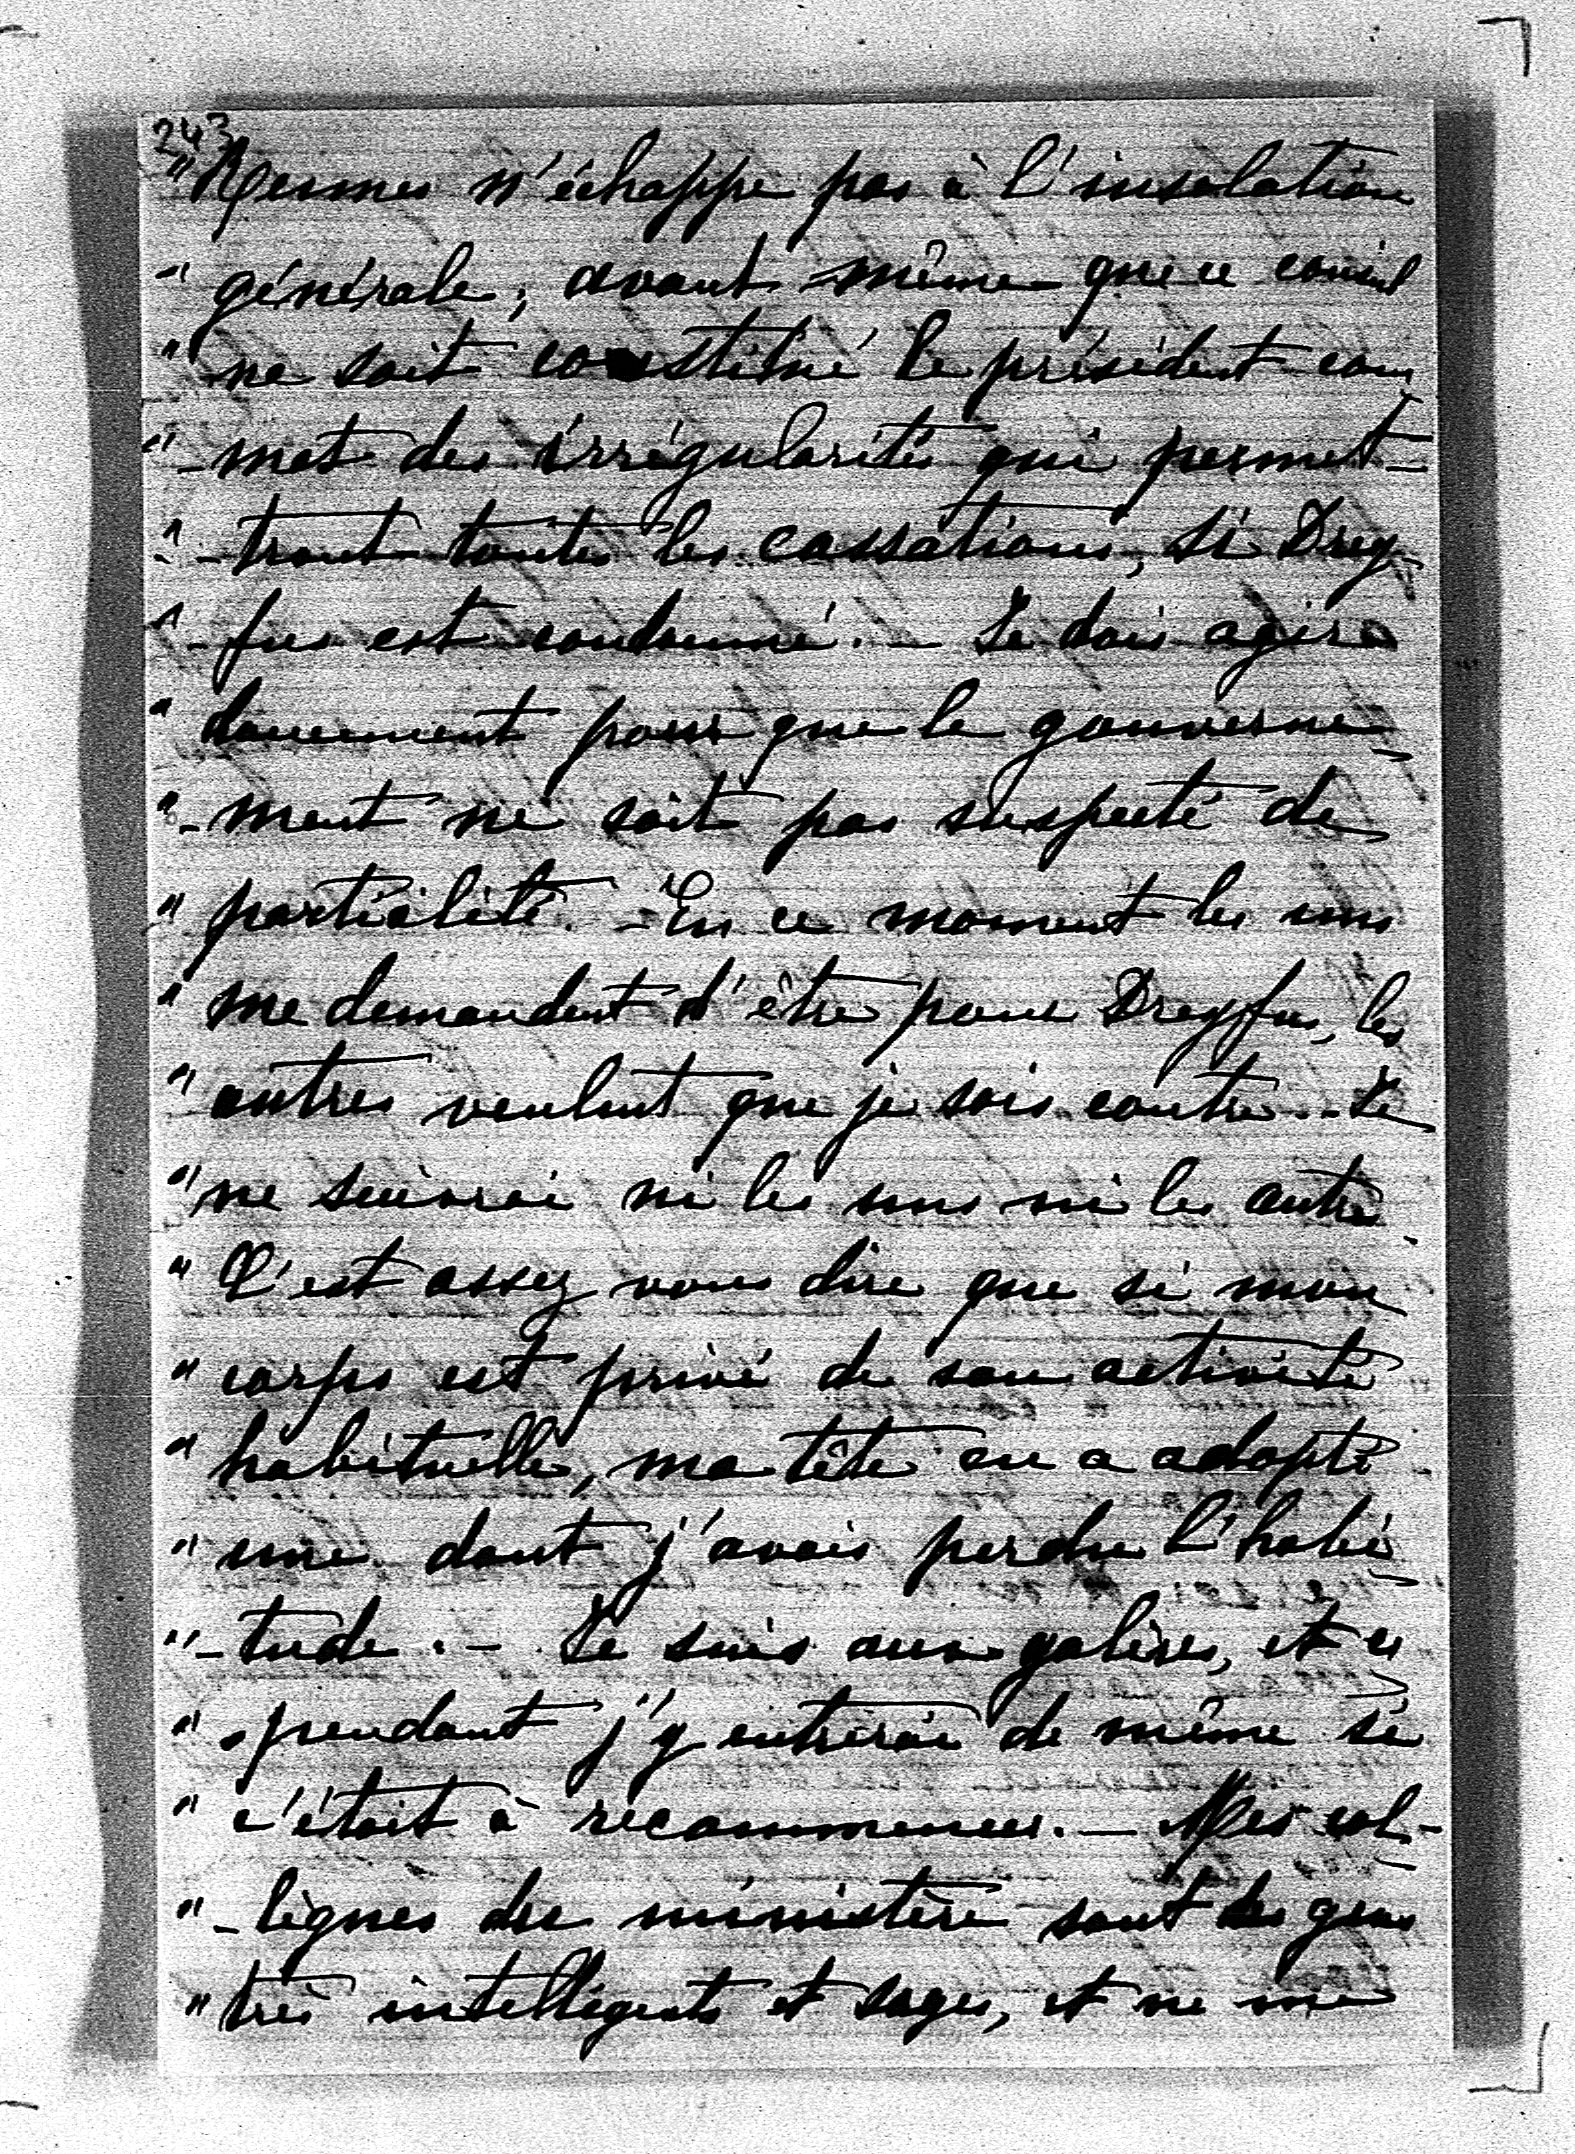 243
" Rennes n'échappe pas à l'insolation
" générale; avant même que ce conseil
" ne soit constitué le président com
" -met des irrégularités qui permet-
" -tront toutes les cassations, si Drey-
" -fus est condamné. - Je dois agir
" doucement pour que le gouverne-
" -ment ne soit pas suspecté de
" partialité. - En ce moment les uns
" me demandent d'être pour Dreyfus, les
" autres veulent que je sois contre. - Je
" ne suivrai ni les uns ni les autres
" C'est assez vous dire que si mon
" corps est privé de son activité
" habituelle, ma tête en a adopté
" une dont j'avais perdu l'habi-
" -tude. - Je suis aux galères, et ce
" -pendant j'y entrerai de même si
" c'était à recommencer. - Mes col-
" -lègues du ministère sont des gens
" très intelligents et sages, et ne me